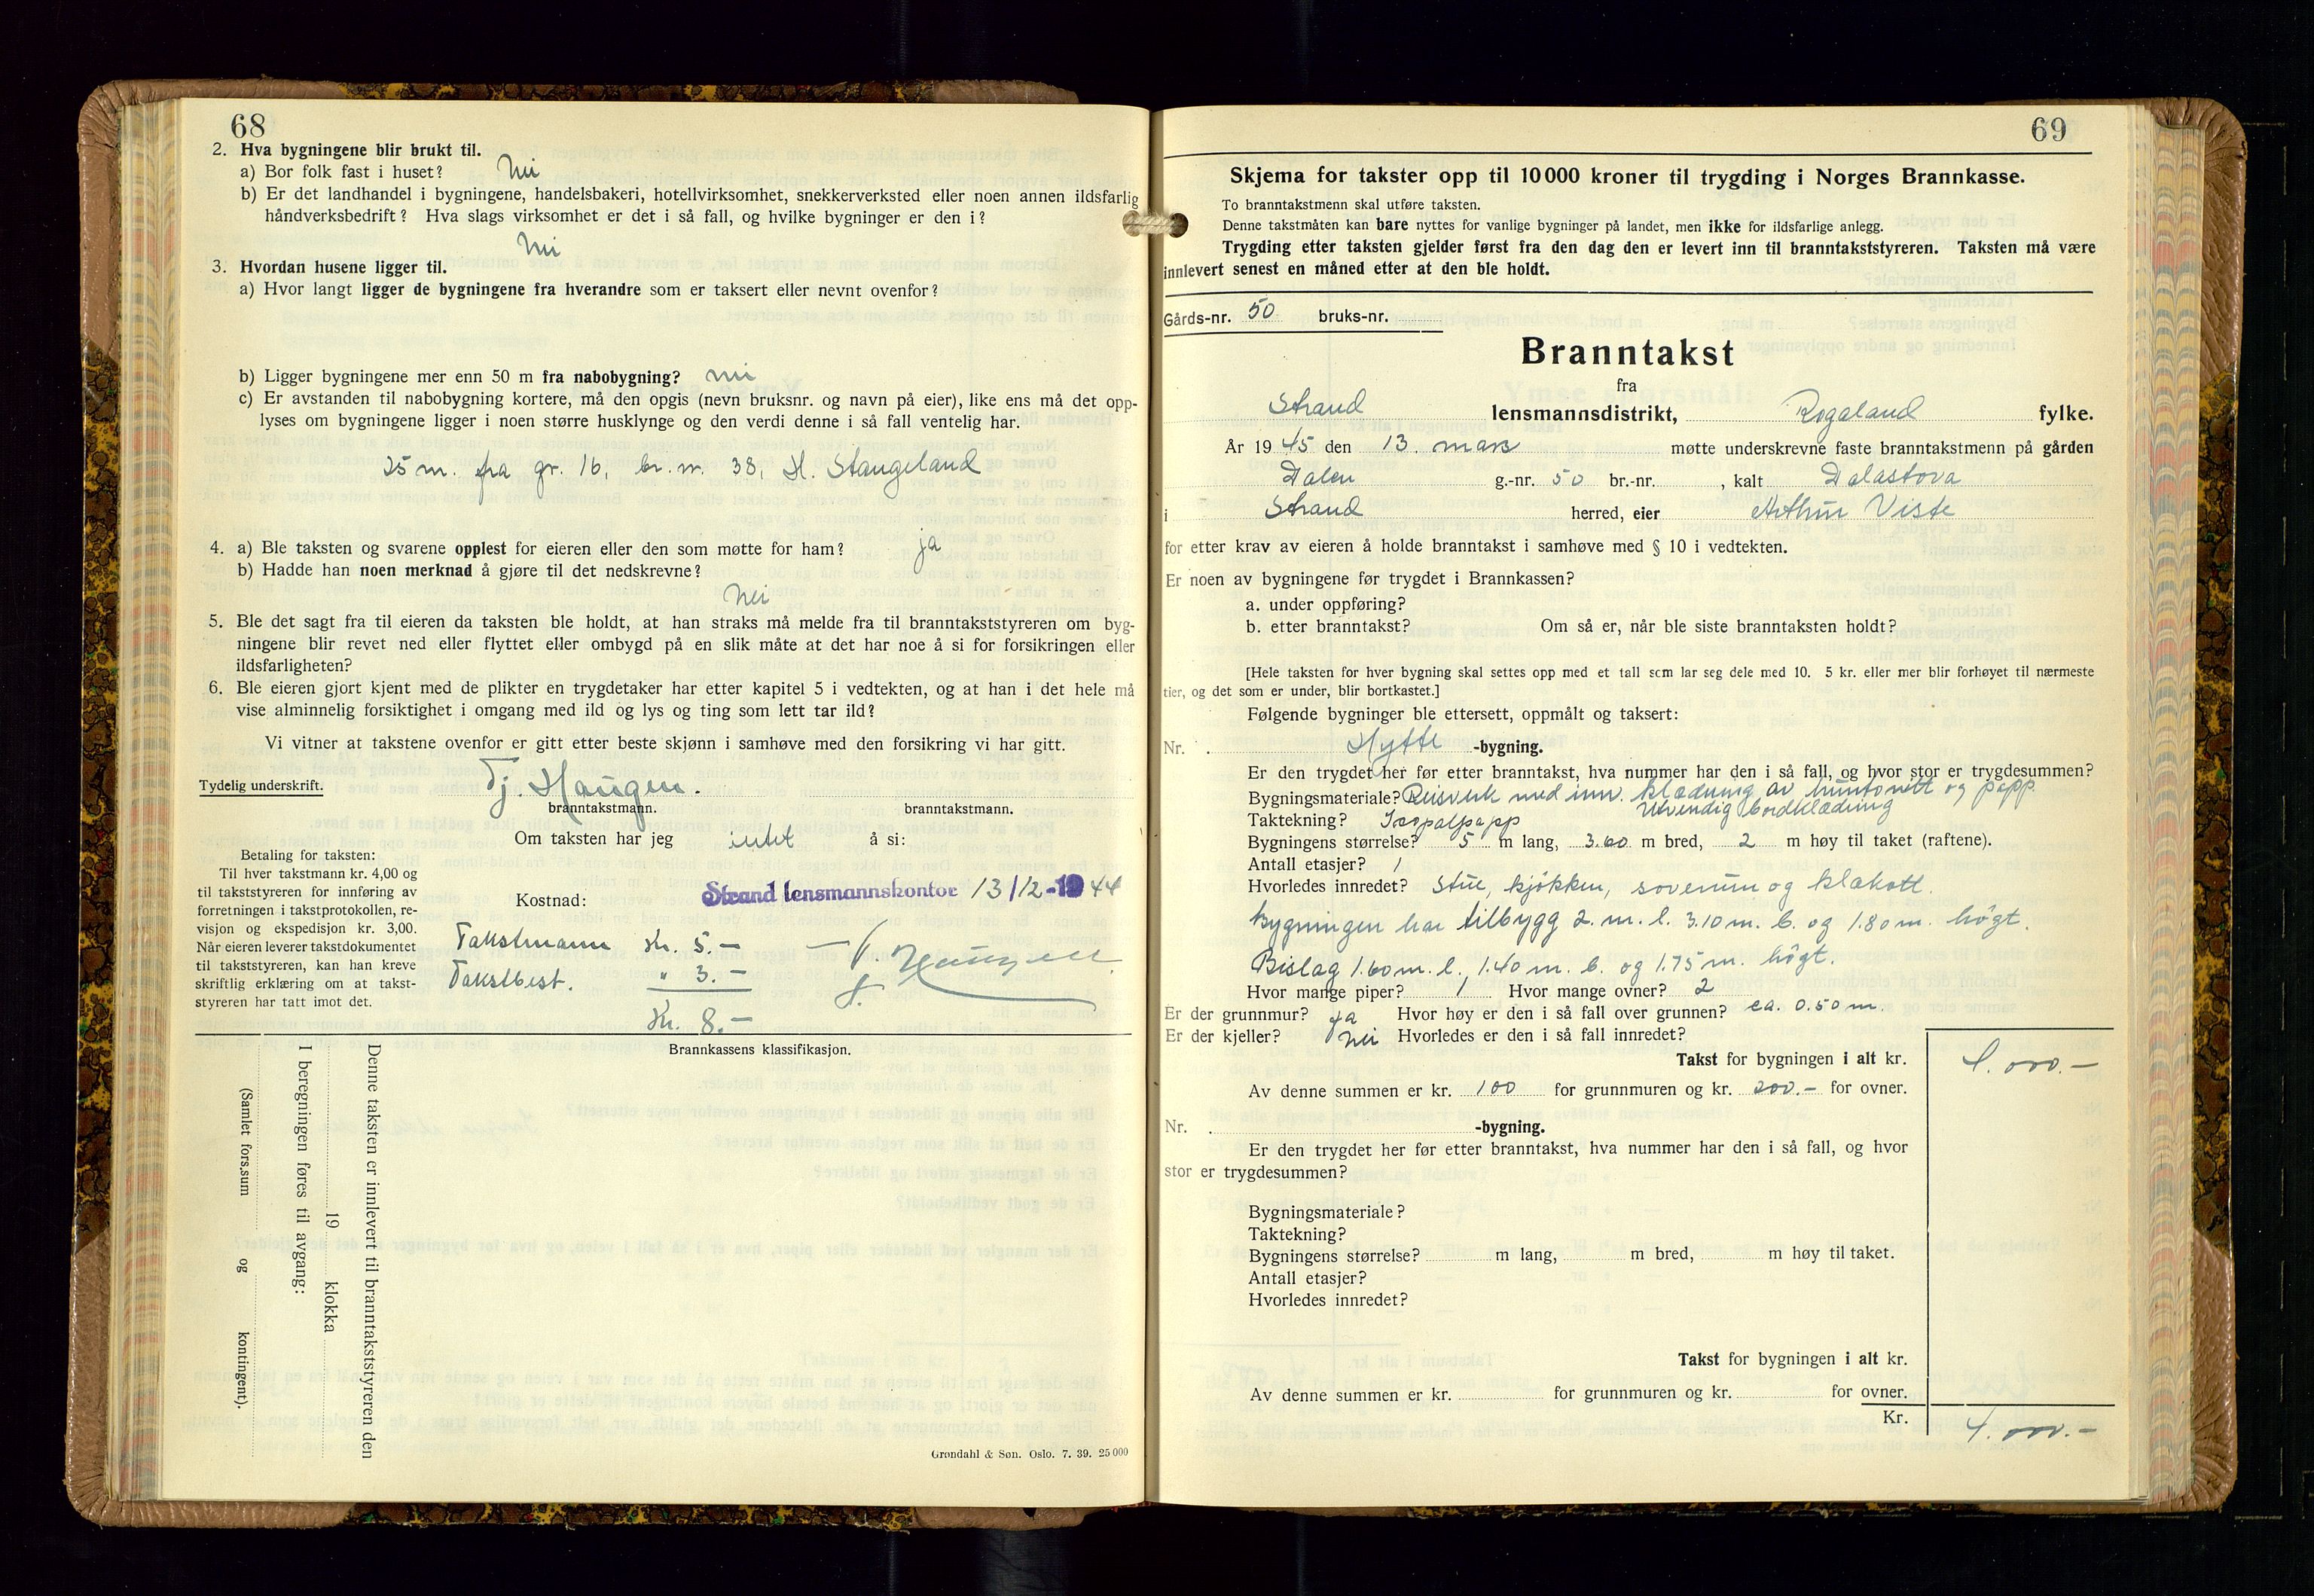 68
2. Hva bygningene blir brukt til.
a) Bor folk fast i huset? Nei
b) Er det landhandel i bygningene, handelsbakeri, hotellvirksomhet, snekkerverksted eller noen annen ildsfarlig
håndverksbedrift? Hva slags virksomhet er det i så fall, og hvilke bygninger er den i?
Nei
3. Hvordan husene ligger til.
a) Hvor langt ligger de bygningene fra hverandre som er taksert eller nevnt ovenfor?
b) Ligger bygningene mer enn 50 m fra nabobygning? nei
c) Er avstanden til nabobygning kortere, må den opgis (nevn bruksnr. og navn på eier), like ens må det opp-
lyses om bygningene ligger i noen større husklynge og den verdi denne i så fall ventelig har.
25 m. fra gr. 16, br. nr. 38, H. Stangeland
4. a) Ble taksten og svarene opplest for eieren eller den som møtte for ham? ja
b) Hadde han noen merknad å gjøre til det nedskrevne?
Nei
5. Ble det sagt fra til eieren da taksten ble holdt, at han straks må melde fra til branntakststyreren om byg-
ningene blir revet ned eller flyttet eller ombygd på en slik måte at det har noe å si for forsikringen eller
ildsfarligheten?
6. Ble eieren gjort kjent med de plikter en trygdetaker har etter kapitel 5 i vedtekten, og at han i det hele må
vise alminnelig forsiktighet i omgang med ild og lys og ting som lett tar ild?
Vi vitner at takstene ovenfor er gitt etter beste skjønn i samhøve med den forsikring vi har gitt.
Tydelig underskrift. Tj. Haugen.
branntakstmann. branntakstmann.
Om taksten har jeg intet å si:
Betaling for taksten:
Til hver takstmann kr. 4,00 og
til takststyreren for innføring av
forretningen i takstprotokollen, re-
visjon og ekspedisjon kr. 3,00.
Når eieren leverer takstdokumentet
til takststyreren, kan han kreve
skriftlig erklæring om at takst-
styreren har tatt imot det.
Kostnad: Strand lensmannskontor 13/12-1944
Takstmann Kr. 5.-
Takstbest. " 3.-
Kr. 8.-
T. Haugen
Brannkassens klassifikasjon.
Denne taksten er innlevert til branntakststyreren den
19 klokka
I beregningen føres til avgang:
(Samlet fors.sum og kontingent).
Grøndahl & Søn. Oslo. 7. 39. 25 000
69
Skjema for takster opp til 10 000 kroner til trygding i Norges Brannkasse.
To branntakstmenn skal utføre taksten.
Denne takstmåten kan bare nyttes for vanlige bygninger på landet, men ikke for ildsfarlige anlegg.
Trygding etter taksten gjelder først fra den dag den er levert inn til branntakststyreren. Taksten må være
innlevert senest en måned etter at den ble holdt.
Gårds-nr. 50 bruks-nr.
Branntakst
fra
Strand lensmannsdistrikt, Rogaland fylke.
År 1945 den 13. mars møtte underskrevne faste branntakstmenn på gården
Dalen g.-nr. 50 br.-nr. , kalt Dalastova
i Strand herred, eier Arthur Viste
for etter krav av eieren å holde branntakst i samhøve med § 10 i vedtekten.
Er noen av bygningene før trygdet i Brannkassen?
a. under oppføring?
b. etter branntakst? Om så er, når ble siste branntaksten holdt?
[Hele taksten for hver bygning skal settes opp med et tall som lar seg dele med 10. 5 kr. eller mer blir forhøyet til nærmeste
tier, og det som er under, blir bortkastet.]
Følgende bygninger ble ettersett, oppmålt og taksert:
Nr. Hytte -bygning.
Er den trygdet her før etter branntakst, hva nummer har den i så fall, og hvor stor er trygdesummen?
Bygningsmateriale? Reisverk med inv. klædning av huntonitt og papp.
Utvendig bordklædning
Taktekning? Icopalpapp
Bygningens størrelse? 5 m lang, 3.60 m bred, 2 m høy til taket (raftene).
Antall etasjer? 1
Hvorledes innredet? Stue, kjøkken, soverum og klækott.
Bygningen har tilbygg 2. m. l. 3.10 m. b. og 1.80 m. høgt.
Bislag 1.60 m. l., 1.40 m. b. og 1.75 m. høgt.
Hvor mange piper? 1 Hvor mange ovner? 2
Er der grunnmur? ja Hvor høy er den i så fall over grunnen? ca. 0.50 m.
Er der kjeller? Nei Hvorledes er den i så fall innredet?
Takst for bygningen i alt kr. 4.000.-
Av denne summen er kr. 100 for grunnmuren og kr. 200.- for ovner.
Nr. -bygning.
Er den trygdet her før etter branntakst, hva nummer har den i så fall, og hvor
stor er trygdesummen?
Bygningsmateriale?
Taktekning?
Bygningens størrelse? m lang, m bred, m høy til taket.
Antall etasjer?
Hvorledes innredet?
Takst for bygningen i alt kr.
Av denne summen er kr. for grunnmuren og kr. for ovner.
Kr. 4.000.-